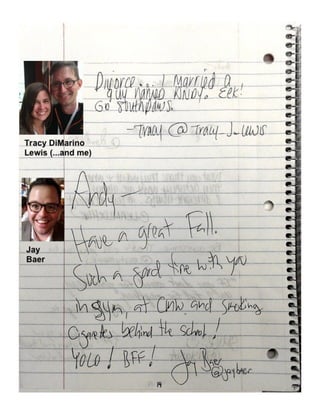 Divorce... I married a
guy named Andy. Eek!
Go Southpaws.
-Tracy @Tracy_J_Lewis
Tracy DiMarino
Lewis (...and me)
Andy-
Have a great Fall.
Such a good time with you
in gym, at CMW and smoking
cigarettes behind the school!
YOLO! BFF! Jay Baer
@jaybaer
Jay
Baer
14